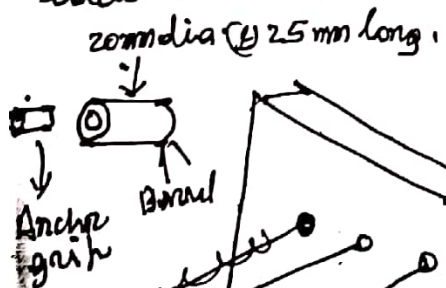 20mm dia @ 25 mm long.
Barrel
Anchor
grip